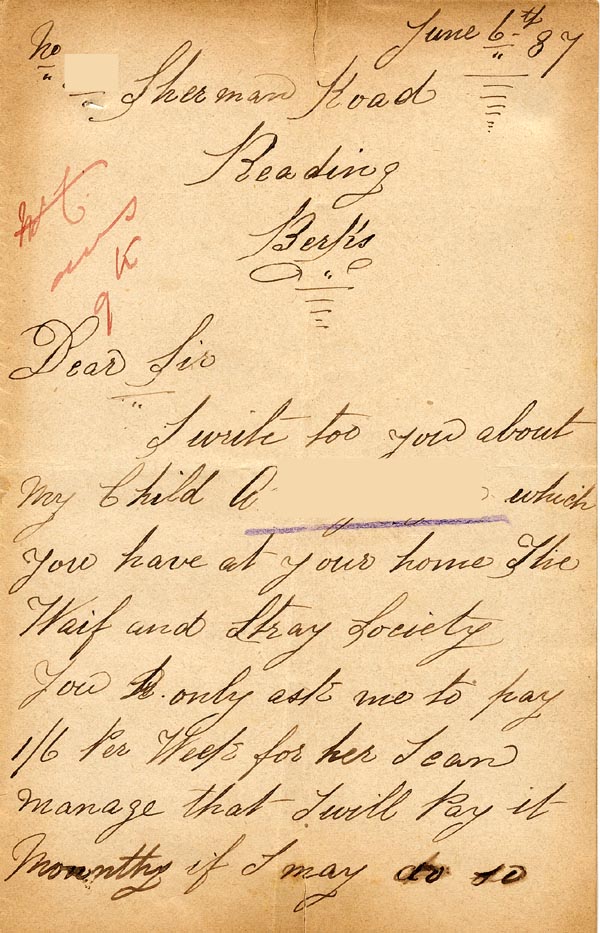 June 6th 87
No
Sherman Road
Reading
Berks
Dear Sir
I write too you about
my Child A which
you have at your home The
Waif and Stray Society
You only ask me to pay
1/6 Per Week for her I can
manage that I will Pay it
Mounthy if I may do so